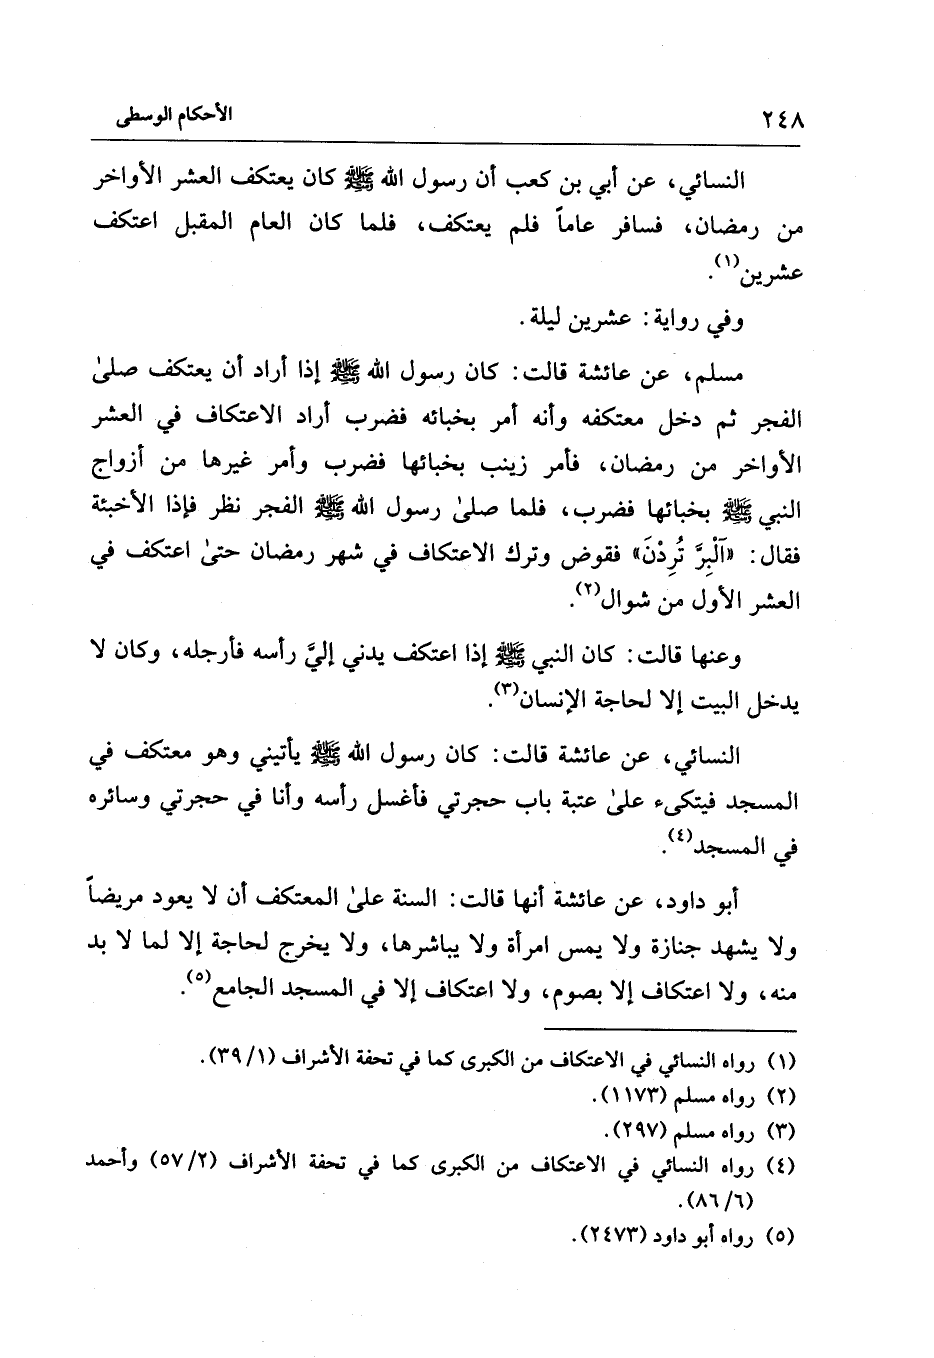 ٢٤٨
الأحكام الوسطى
النسائي، عن أبي بن كعب أن رسول الله ﷺ كان يعتكف العشر الأواخر
من رمضان، فسافر عاماً فلم يعتكف، فلما كان العام المقبل اعتكف
عشرين(١).
وفي رواية: عشرين ليلة.
مسلم، عن عائشة قالت: كان رسول الله ﷺ إذا أراد أن يعتكف صلىٰ
الفجر ثم دخل معتكفه وأنه أمر بخبائه فضرب أراد الاعتكاف في العشر
الأواخر من رمضان، فأمر زينب بخبائها فضرب وأمر غيرها من أزواج
النبي ﷺ بخبائها فضرب، فلما صلىٰ رسول الله ﷺ الفجر نظر فإذا الأخبئة
فقال: «اَلْبِرَّ تُرِدْنَ» فقوض وترك الاعتكاف في شهر رمضان حتىٰ اعتكف في
العشر الأول من شوال(٢).
وعنها قالت: كان النبي ﷺ إذا اعتكف يدني إليَّ رأسه فأرجله، وكان لا
يدخل البيت إلا لحاجة الإنسان(٣).
النسائي، عن عائشة قالت: كان رسول الله ﷺ يأتيني وهو معتكف في
المسجد فيتكىء علىٰ عتبة باب حجرتي فأغسل رأسه وأنا في حجرتي وسائره
في المسجد(٤).
أبو داود، عن عائشة أنها قالت: السنة علىٰ المعتكف أن لا يعود مريضاً
ولا يشهد جنازة ولا يمس امرأة ولا يباشرها، ولا يخرج لحاجة إلا لما لا بد
منه، ولا اعتكاف إلا بصوم، ولا اعتكاف إلا في المسجد الجامع(٥).
(١) رواه النسائي في الاعتكاف من الكبرى كما في تحفة الأشراف (٣٩/١).
(٢) رواه مسلم (١١٧٣).
(٣) رواه مسلم (٢٩٧).
(٤) رواه النسائي في الاعتكاف من الكبرى كما في تحفة الأشراف (٥٧/٢) وأحمد
(٨٦/٦).
(٥) رواه أبو داود (٢٤٧٣).